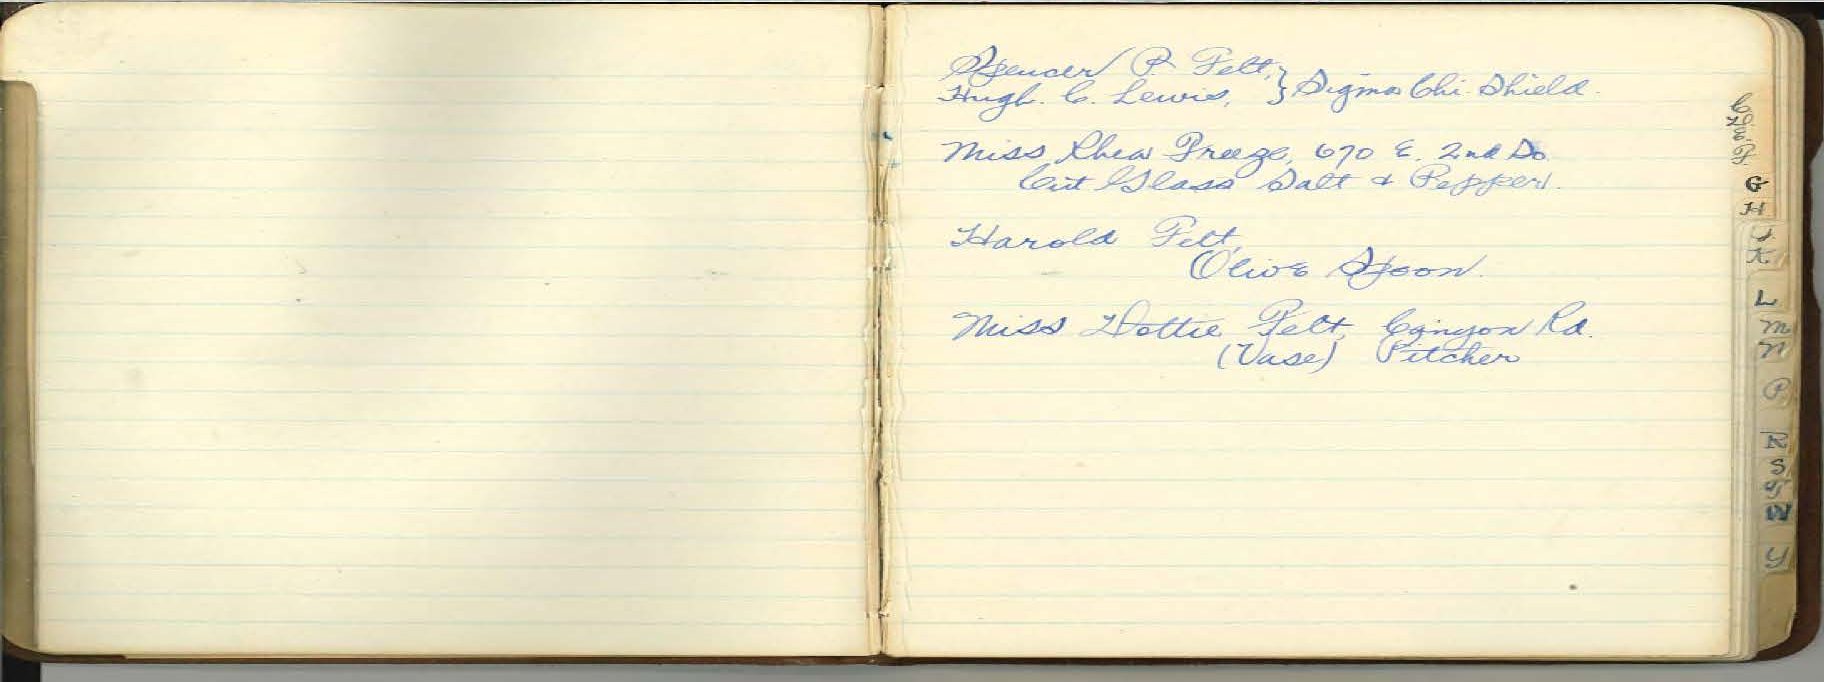 Spencer P. Felt, } Sigma Chi Shield.
Hugh. C. Lewis,
Miss Rhea Freeze, 670 E. 2nd So.
Cut Glass Salt & Pepper.
Harold Felt,
Olive Spoon.
Miss Dottie Felt, Canyon Rd.
(Vase) Pitcher
G
H
J
K
L
M
N
P
R
S
T
W
Y